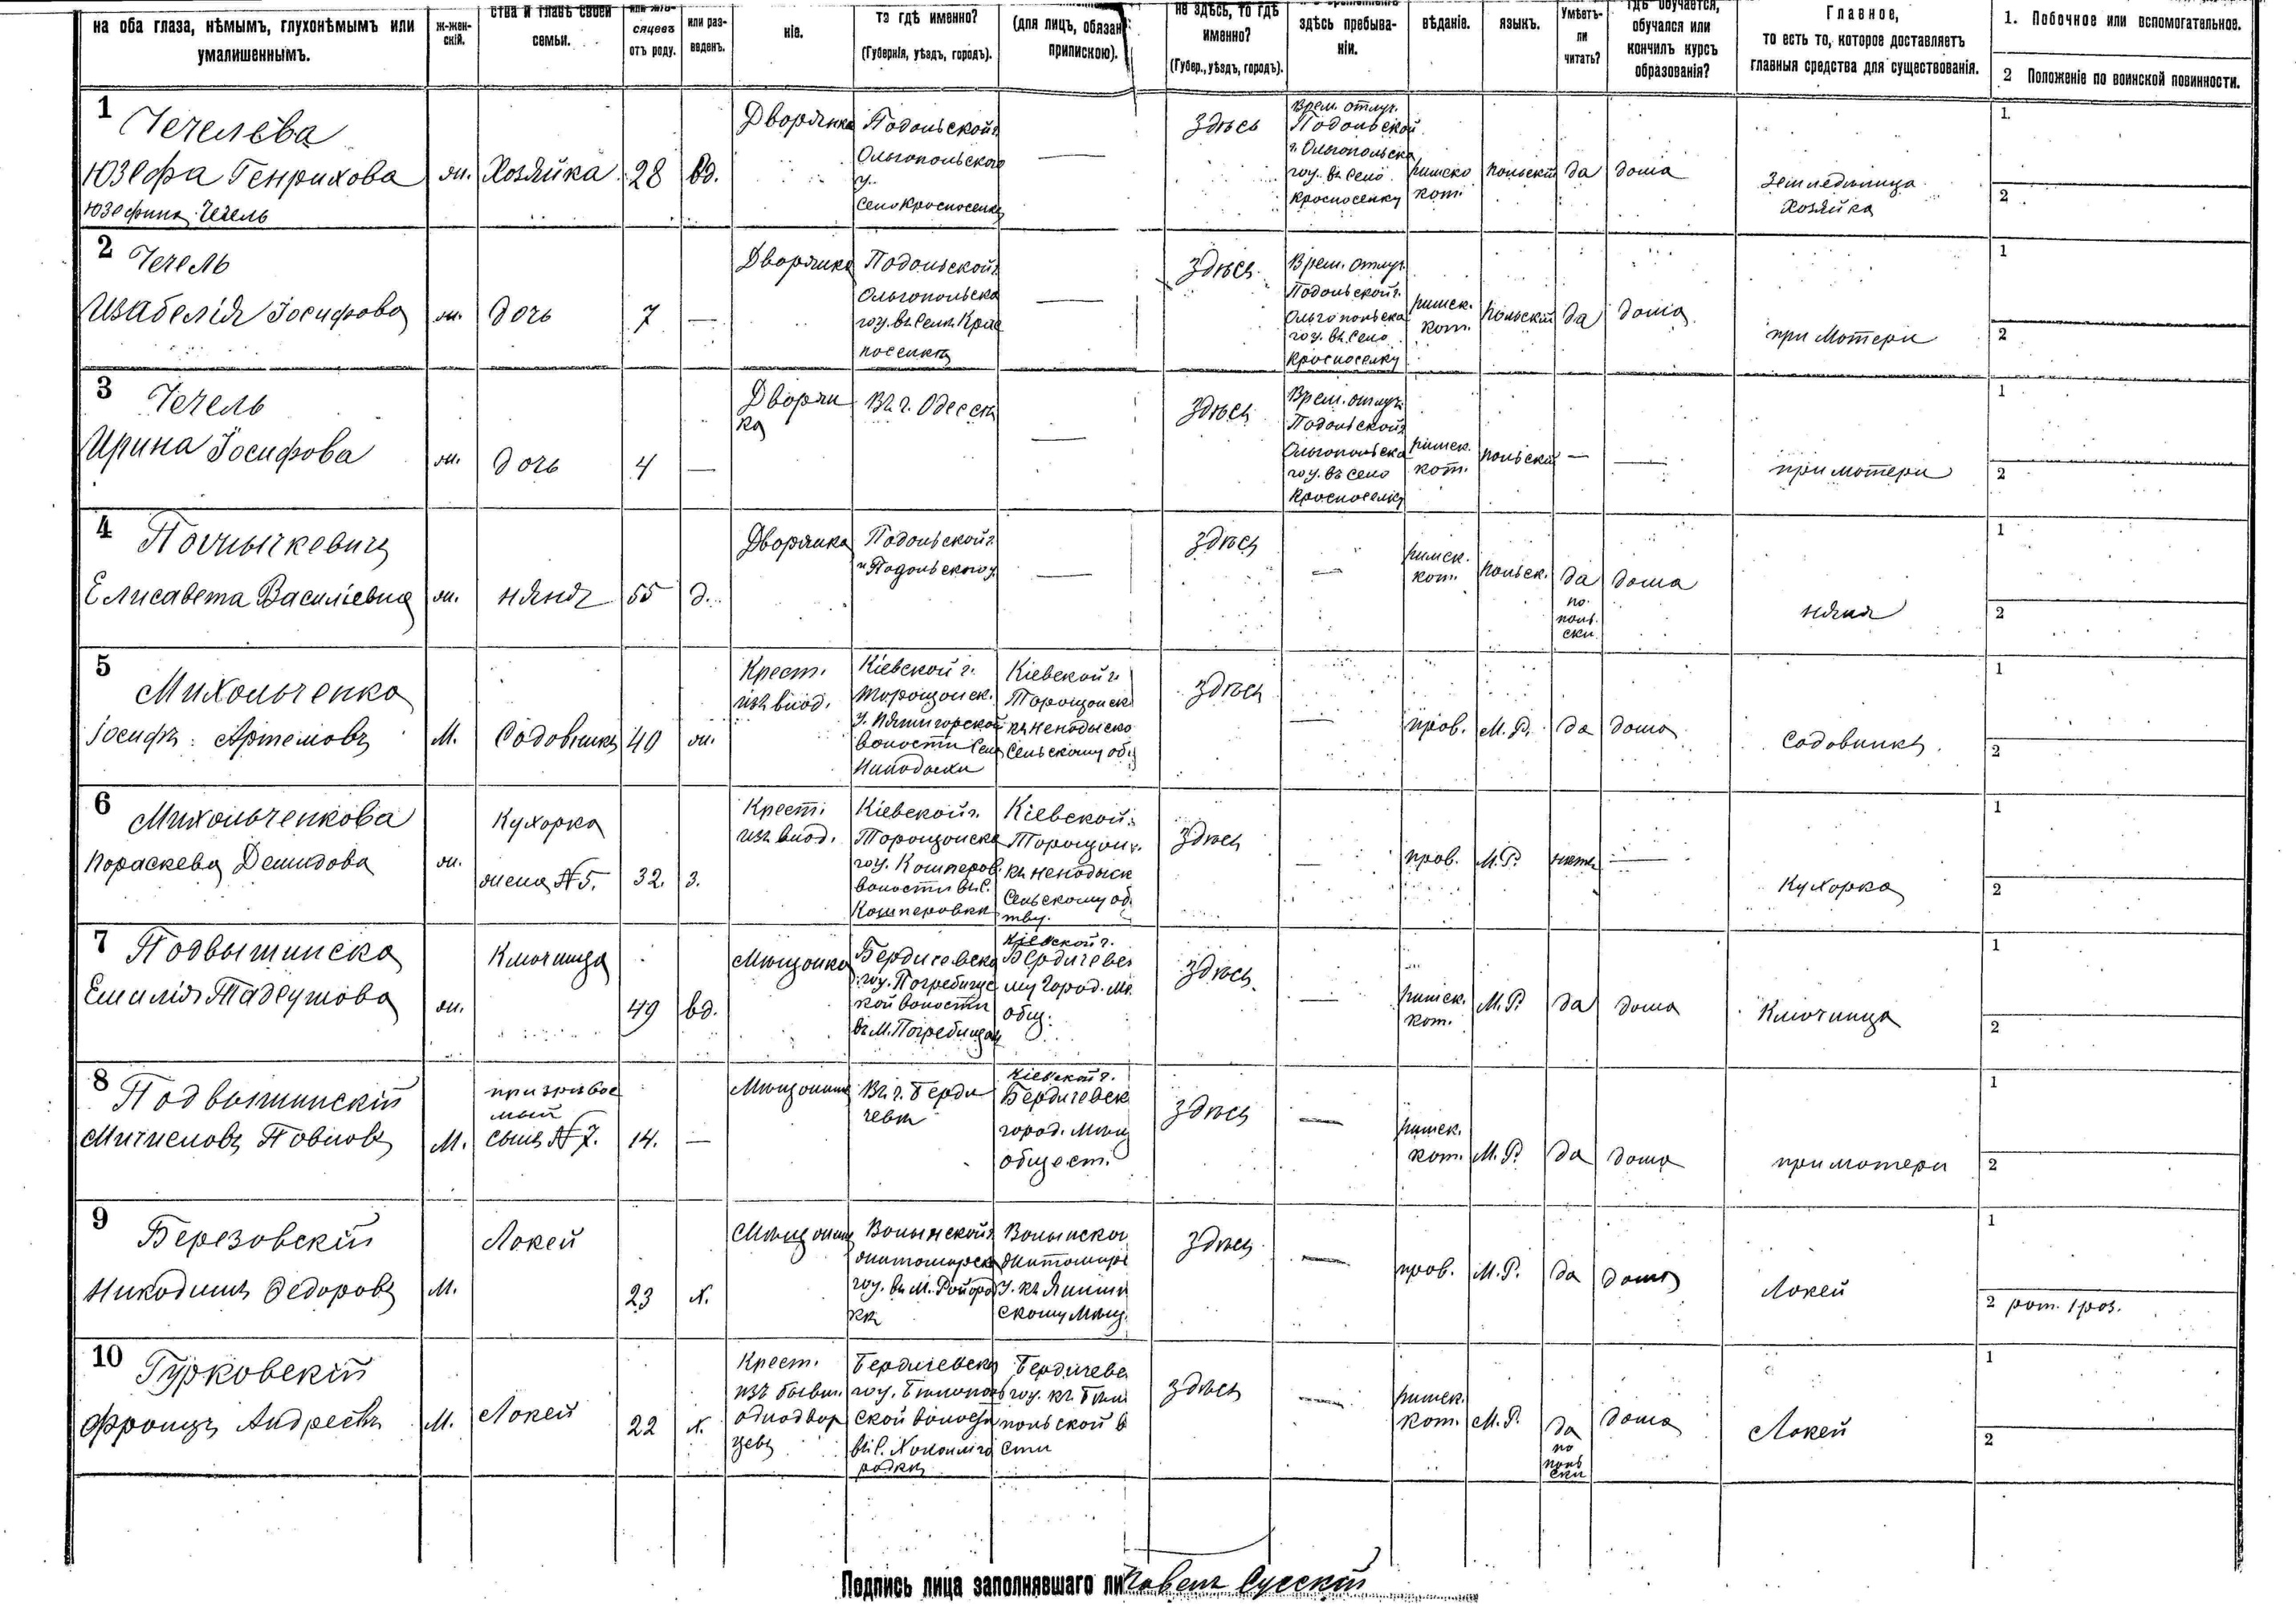 на оба глаза, нѣмымъ, глухонѣмымъ или умалишеннымъ.
ж-жен-скій.
ства и главѣ своей семьи.
сяцевъ отъ роду.
или раз-веденъ.
ніе.
то гдѣ именно? (Губернія, уѣздъ, городъ).
(для лицъ, обязан припискою).
не здѣсь, то гдѣ именно? (Губер., уѣздъ, городъ).
здѣсь пребыва-ніи.
вѣданіе.
языкъ.
Умѣетъ-ли читать?
гдѣ обучается, обучался или кончилъ курсъ образованія?
Главное, то есть то, которое доставляетъ главныя средства для существованія.
1. Побочное или вспомогательное.
2 Положеніе по воинской повинности.
1 Чечелева
Юзефа Генрихова
Юзефина Чечель
ж.
Хозяйка
28
вд.
Дворянка
Подольской г.
Ольгопольского
у.
село Красносенка
—
здѣсь
Врем. отлуч.
Подольской
г. Ольгопольска
гоу. въ село
Красносенку
римско
кат.
польскій
да
дома
Земледѣлица
Хозяйка
1.
2
2 Чечель
Изабелія Іосифова
ж.
дочь
7
—
Дворянка
Подольской г.
Ольгопольска
гоу. въ селѣ Крас
носелкѣ
—
здѣсь
Врем. отлуч.
Подольской г.
Ольгопольска
гоу. въ село
Красноселку
римск.
кат.
польскій
да
дома
при матери
1
2
3 Чечель
Ирина Іосифова
ж.
дочь
4
—
Дворян
ка
Въ г. Одессѣ
—
здѣсь
Врем. отлуч.
Подольской г.
Ольгопольска
гоу. въ село
Красноселку
римск.
кат.
польскій
—
—
при матери
1
2
4
Елисавета Василіевна
ж.
няня
55
д.
Дворянка
Подольской г.
и Подольского у.
—
здѣсь
—
римск.
кат.
польск.
да
по
поль
ски.
дома
няня
1
2
5 Михальченко
Іосифъ Артемовъ
М.
Садовникъ
40
ж.
Крест.
изъ влад.
Кіевской г.
Таращанск.
у. Пятигорской
волости села
Кіевской г.
Таращанск
къ Ненадыско
Сельскому об.
здѣсь
—
прав.
М. Р.
да
дома
Садовникъ
1
2
6 Михальченкова
Параскева Демидова
ж.
Кухарка
жена № 5.
32.
з.
Крест.
изъ влад.
Кіевской г.
Таращанска
гоу. Кашперов.
волости въ с.
Кашперовки
Кіевской.
Таращан.
къ Ненадыск
Сельскому об.
тву.
здѣсь
—
прав.
М. Р.
нѣтъ
—
Кухарка
1
2
7 Подвышинска
Емилія Тадеушова
ж.
Ключница
49
вд.
Мѣщанка
Бердичевска
гоу. Погребищс
кой волости
въ М. Погребищах
Кіевской г.
Бердичевс
му город. Мѣ.
общ.
здѣсь
—
римск.
кат.
М. Р.
да
дома
Ключница
1
2
8 Подвышинскій
Мичиславъ Павловъ
М.
призрѣвае
мый
сынъ № 7.
14.
—
Мѣщанинъ
Въ г. Берди
чевѣ
Кіевской г.
Бердичевск
город. Мѣщ
общест.
здѣсь
—
римск.
кат.
М. Р.
да
дома
при матери
1
2
9 Березовскій
Никодимъ Федоровъ
М.
Лакей
23
х.
Мѣщанинъ
Волынской г.
житомирска
гоу. въ М. Райгород
кѣ
Волынской
житомирс
у. къ
скому Мѣщ.
здѣсь
—
прав.
М. Р.
да
дома
Лакей
1
2 рат. 1 раз.
10 Гурковскій
Францъ Андреевъ
М.
Лакей
22
х.
Крест.
изъ бывш.
однодвор
цевъ
Бердичевска
гоу. Бѣлополь
ской волости
въ с.
Бердичевс
гоу. къ Бѣло
польской в
сти
здѣсь
—
римск.
кат.
М. Р.
да
по
поль
ски
дома
Лакей
1
2
Подпись лица заполнявшаго ли Павелъ Сусскій